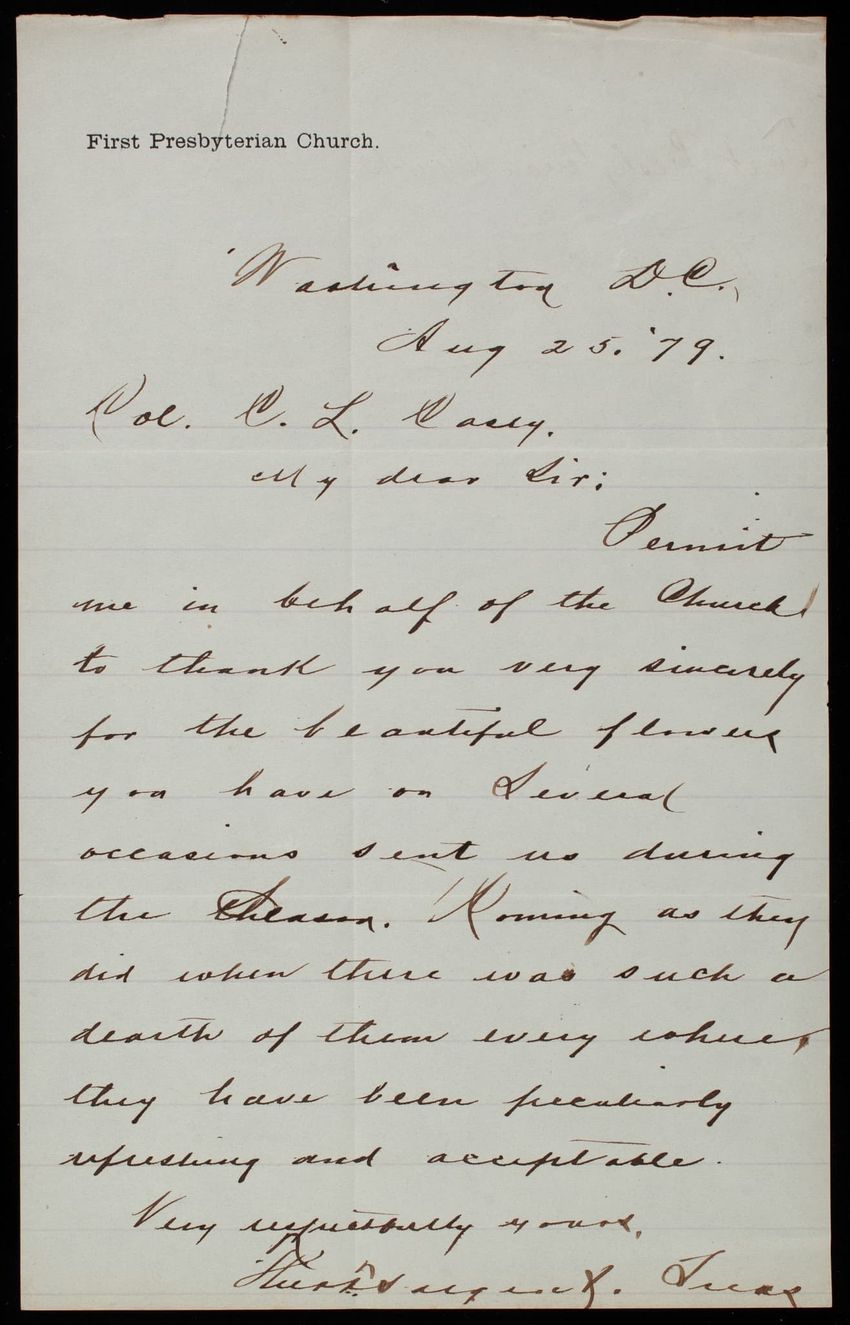 First Presbyterian Church.
Washington D.C.,
Aug 25. '79.
Col. C. L. Casey.
My dear Sir:
Permit
me in behalf of the Church
to thank you very sincerely
for the beautiful flowers
you have on Several
occasions sent us during
the Season. Coming as they
did when there was such a
dearth of them every where,
they have been peculiarly
refreshing and acceptable.
Very respectfully yours,
Sargent. Treas